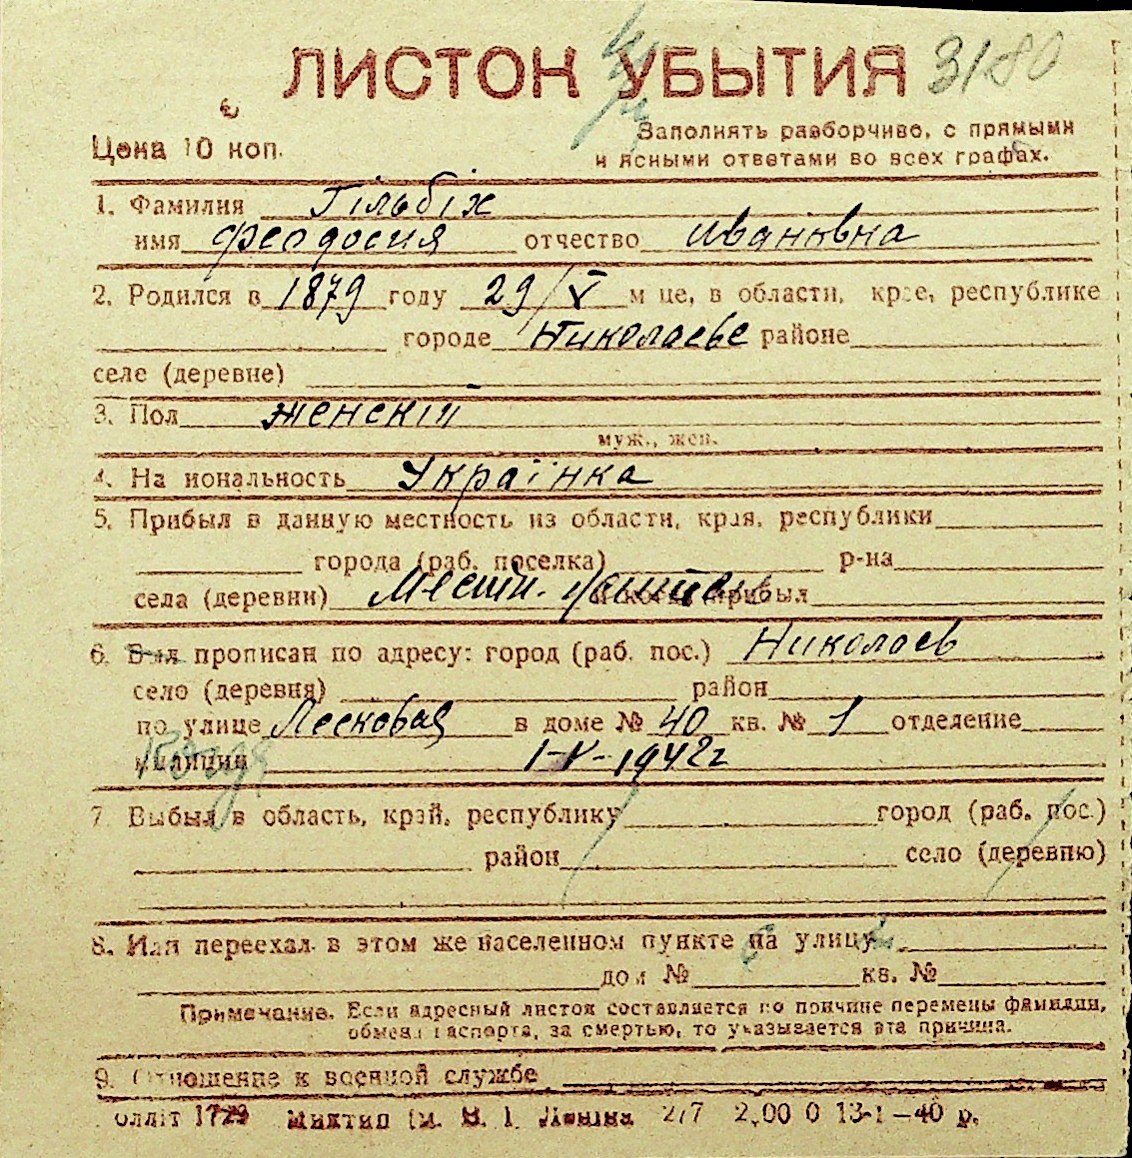 ЛИСТОК УБЫТИЯ 3180
Цена 10 коп.
Заполнять разборчиво, с прямыми
и ясными ответами во всех графах.
1. Фамилия Гільбіх
имя Феодосия отчество Иванівна
2. Родился в 1879 году 29/V м це, в области, крае, республике
городе Николаеве районе
селе (деревне)
3. Пол женскій
муж., жен.
4. На иональность Українка
5. Прибыл в данную местность из области, края, республики
города (раб. поселка) р-на
села (деревни) Местн. и когда прибыл
6. Был прописан по адресу: город (раб. пос.) Николаев
село (деревня) район
по улице Песковая в доме № 40 кв. № 1 отделение
милиции Когда 1-V-1942г
7. Выбыл в область, край, республику город (раб. пос.)
район село (деревню)
8. Или переехал в этом же населенном пункте на улицу
дом № кв. №
Примечание. Если адресный листок составляется по причине перемены фамилии,
обмена паспорта, за смертью, то указывается эта причина.
9. Отношение к военной службе
оллит 1729 Миктип им. В. І. Леніна 277 2,00 0 13-1-40 р.